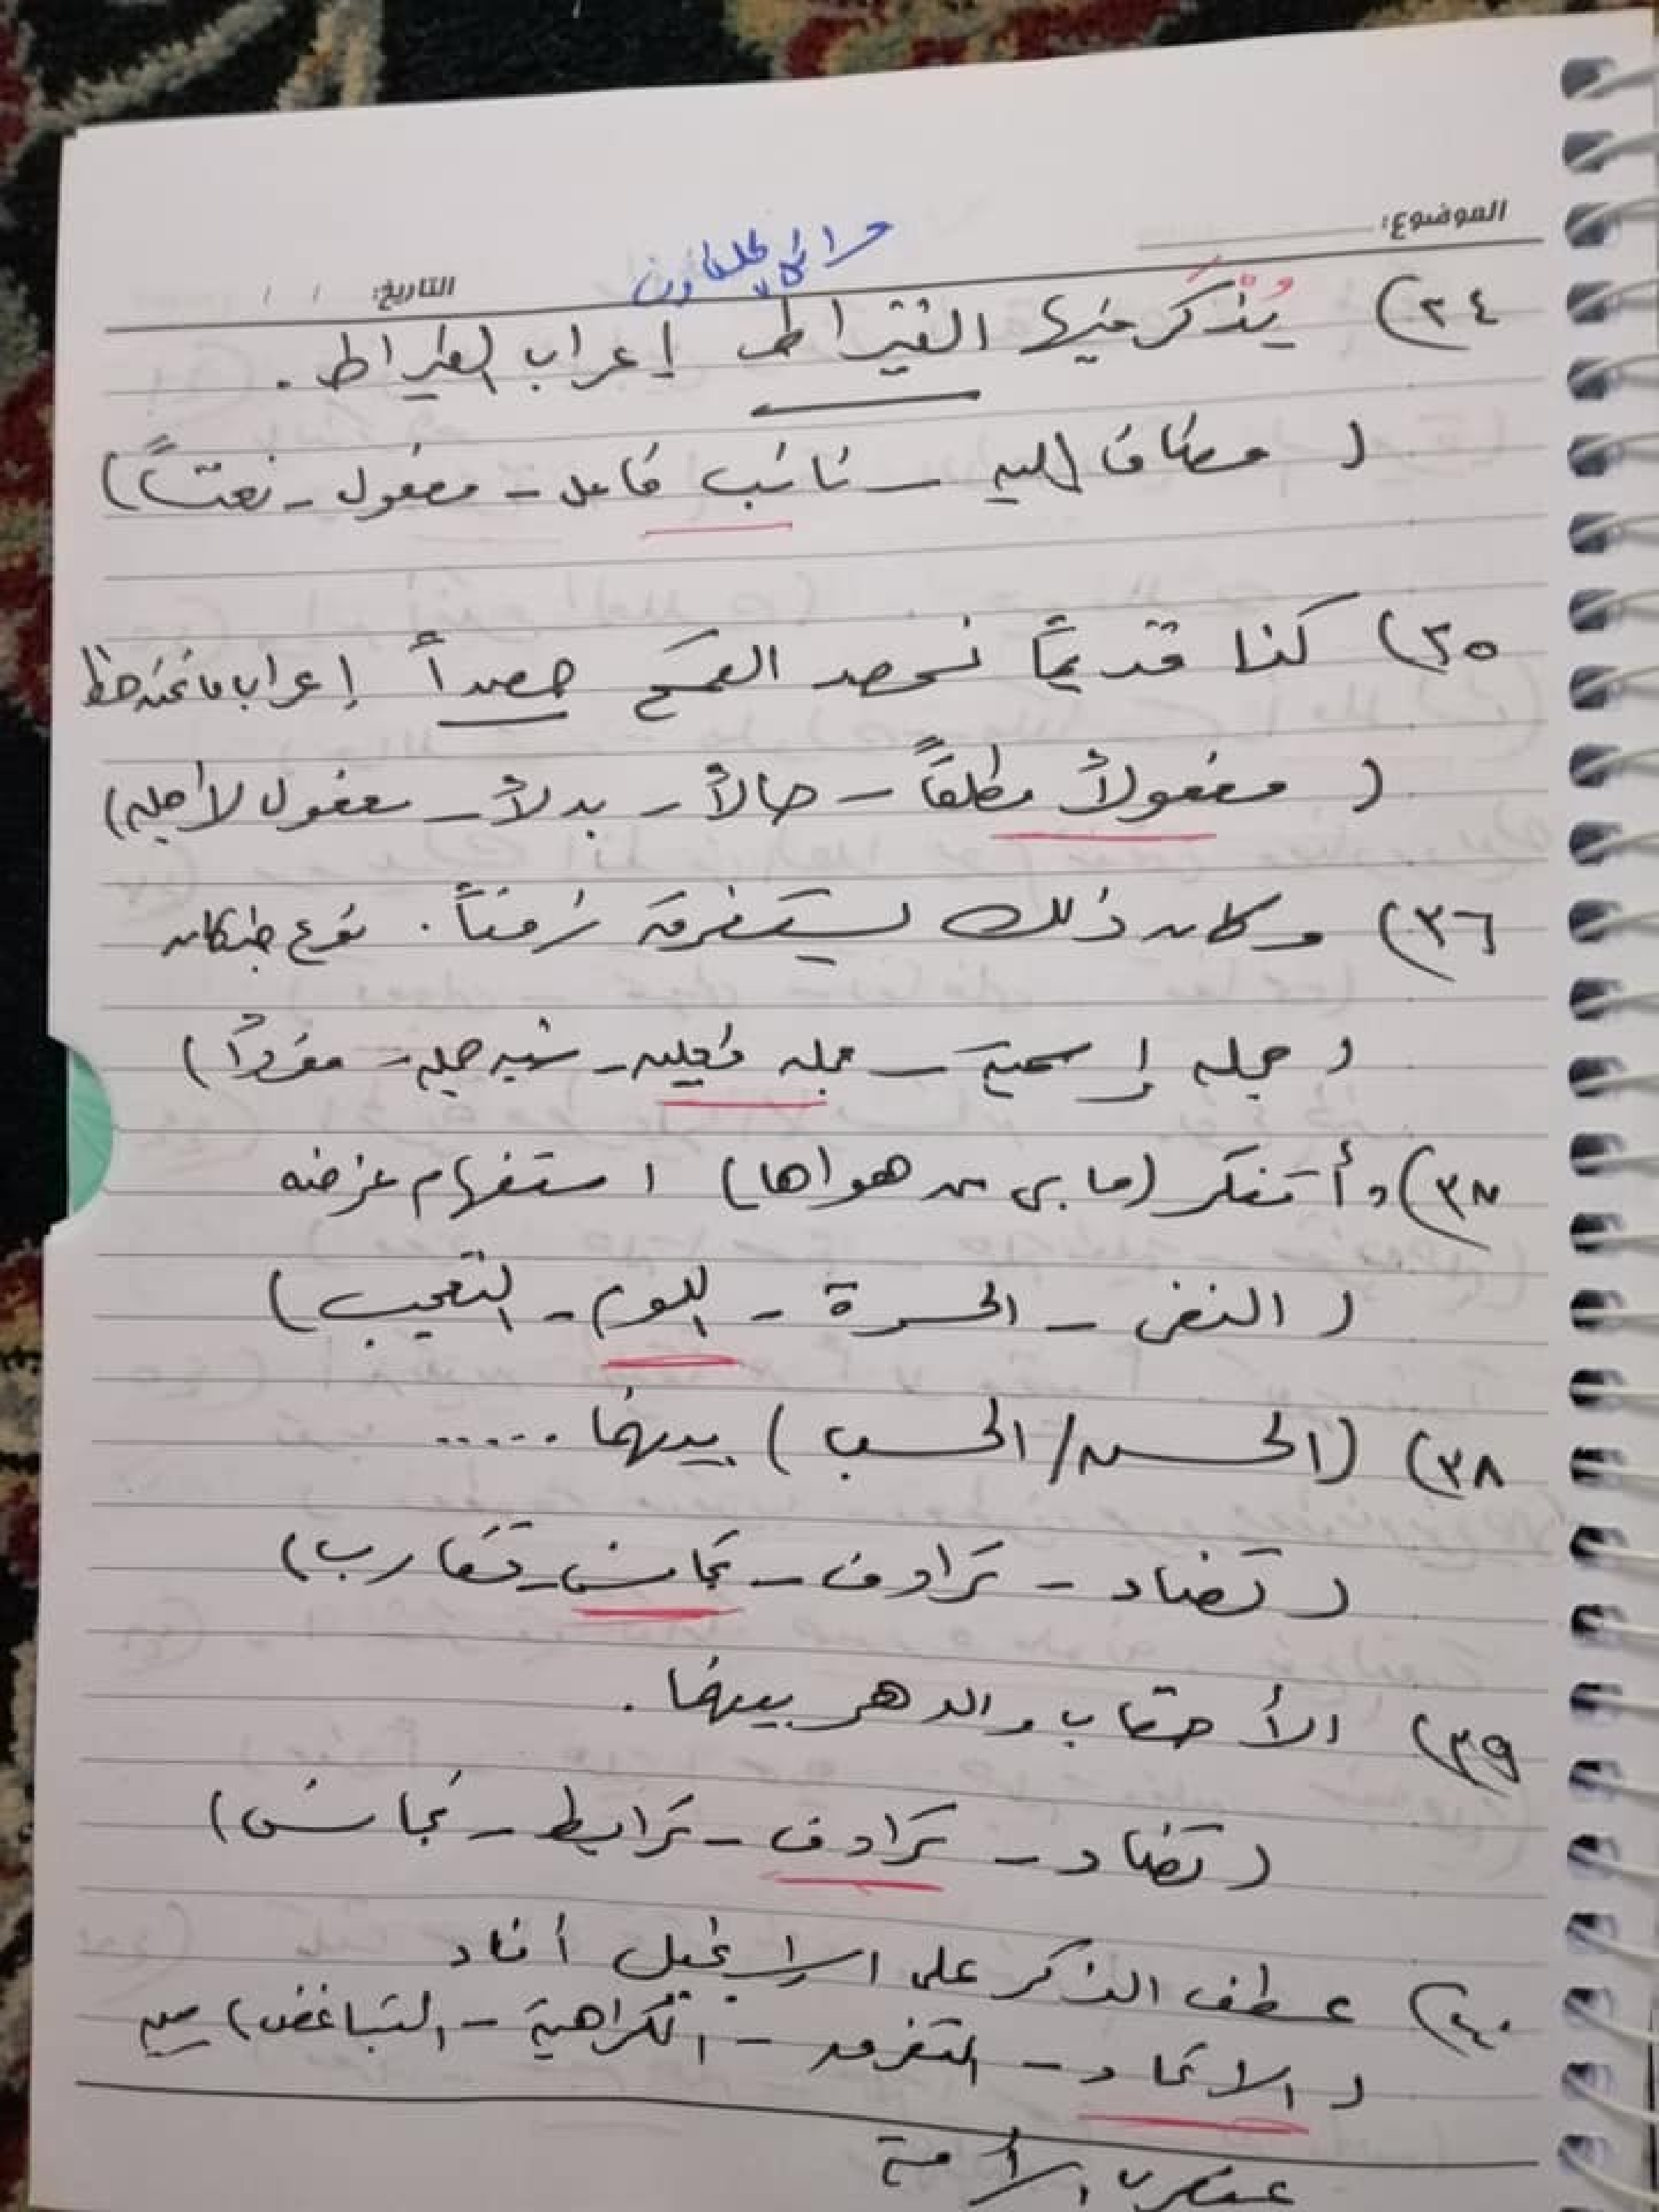 الموضوع:
التاريخ: / /
٣٤) يُذْكَر فيها القيراط إعراب القيراط .
( مضاف إليه - نائب فاعل - مفعول - نعتاً)
٣٥) كنا قديماً نحصد القمح حصداً إعراب ما تحته خط
( مفعولاً مطلقاً - حالاً - بدلاً - مفعول لأجله)
٣٦) وكان ذلك يستغرق زمناً . نوع خبر كان
( جمله إسمية - جمله فعليه - شبه جمله - مفرداً)
٣٧) وأتنكر (ما بى من هواها) استفهام غرضه
( النفى - الحسرة - اللوم - التعجب)
٣٨) (الحسن/الحسب) بينهما .....
( تضاد - ترادف - تجانس - تقارب)
٣٩) الأحقاب والدهر بينهما .
( تضاد - ترادف - ترابط - تجانس)
٤٠) عطف الذكر على الإنجيل أفاد
( الاتحاد - التفرد - الكراهية - التباغض) بين
عنصرى الأمة